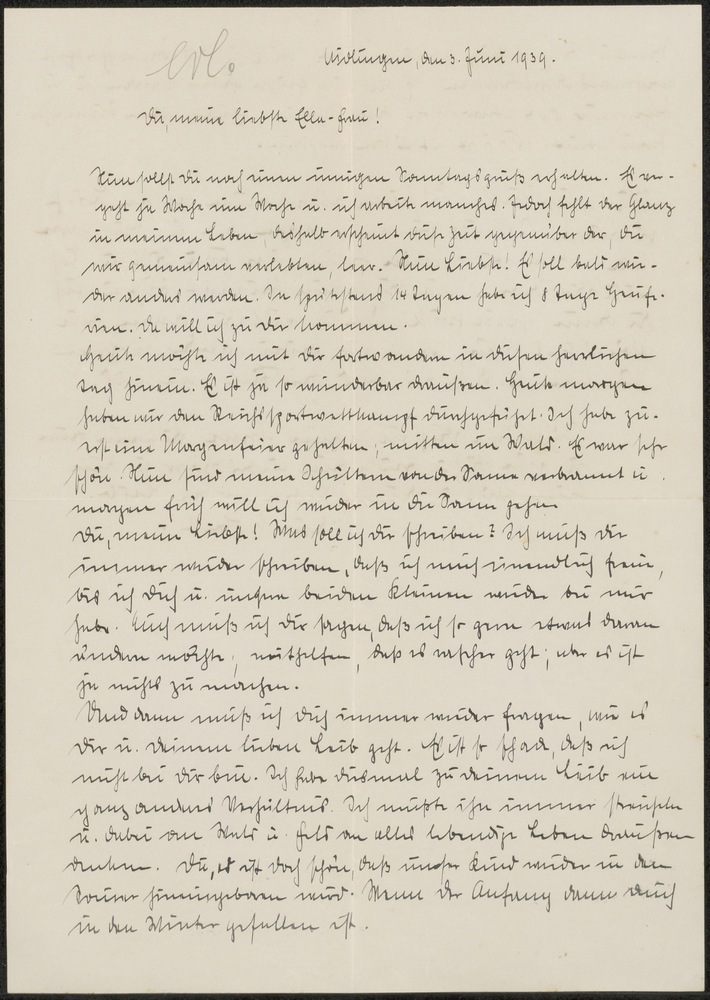 erl.
Aidlingen, den 3. Juni 1939.
Du, meine liebste Ella-Frau!
Nun sollst Du noch einen innigen Sonntagsgruß erhalten. Es ver-
geht ja Woche um Woche u. ich arbeite manches. Jedoch fehlt der Glanz
in meinem Leben, deshalb erscheint diese Zeit gegenüber der, die
wir gemeinsam verlebten, leer. Nun Liebste! Es soll bald wie-
der anders werden. In spätestens 14 Tagen habe ich 8 Tage Heufe-
rien. Da will ich zu Dir kommen.
Heute möchte ich mit Dir fortwandern in diesen herrlichen
Tag hinein. Es ist ja so wunderbar draußen. Heute morgen
haben wir den Reichssportwettkampf durchgeführt. Ich habe zu-
erst eine Morgenfeier gehalten, mitten im Wald. Es war sehr
schön. Nun sind meine Schultern von der Sonne verbrannt u.
morgen früh will ich wieder in die Sonne gehen.
Du, meine Liebste! Was soll ich Dir schreiben? Ich muß Dir
immer wieder schreiben, daß ich mich unendlich freue,
bis ich Dich u. unsere beiden Kleinen wieder bei mir
habe. Auch muß ich Dir sagen, daß ich so gern etwas daran
ändern möchte, mithelfen, daß es rascher geht; aber es ist
ja nichts zu machen.
Und dann muß ich Dich immer wieder fragen, wie es
Dir u. Deinem lieben Leib geht. Es ist so schad, daß ich
nicht bei Dir bin. Ich habe diesmal zu deinem Leib ein
ganz anderes Verhältnis. Ich müßte ihn immer streicheln
u. dabei an Wald u. Feld an alles lebendige Leben draußen
denken. Du, es ist doch schön, daß unser Kind wieder in den
Sommer hineingeboren wird. Wenn der Anfang dann auch
in den Winter gefallen ist.